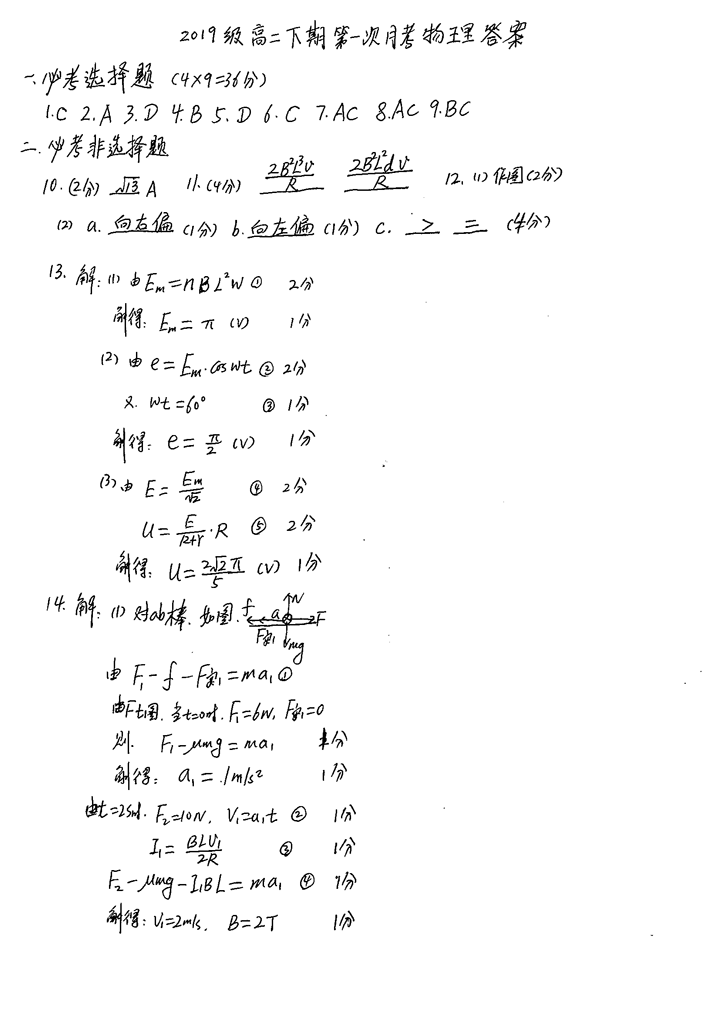 2019级高二下期第一次月考物理答案
一、必考选择题 (4×9=36分)
1.C 2.A 3.D 4.B 5.D 6.C 7.AC 8.AC 9.BC
二、必考非选择题
10.(2分) √13 A 11.(4分) 2B²L³v/R 2B²L²dv/R 12.(1)作图(2分)
(2) a. 向右偏 (1分) b. 向左偏 (1分) c. > = (4分)
13. 解:(1) 由 Em=nBL²W ① 2分
解得: Em=π (V) 1分
(2) 由 e=Em·cos wt ② 2分
又 wt=60° ③ 1分
解得: e=π/2 (V) 1分
(3) 由 E=Em/√2 ④ 2分
U=E/(R+r)·R ⑤ 2分
解得: U=2√2π/5 (V) 1分
14. 解: (1) 对ab棒, 如图. f a N F F安1 mg
由 F₁-f-F安₁=ma₁ ①
由F-t图, 当t=0时, F₁=6N, F安₁=0
则 F₁-μmg=ma₁ 1分
解得: a₁=1m/s² 1分
由t=2s时, F₂=10N, V₁=a₁t ② 1分
I₁=BLV₁/2R ③ 1分
F₂-μmg-I₁BL=ma₁ ④ 1分
解得: V₁=2m/s, B=2T 1分